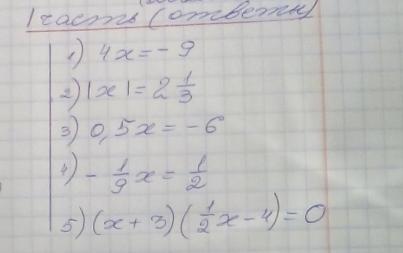 1 часть (ответы)
1) 4x = - 9
2) |x| = 2 1/3
3) 0,5x = -6
4) - 1/9 x = 1/2
5) (x + 3)(1/2 x - 4) = 0